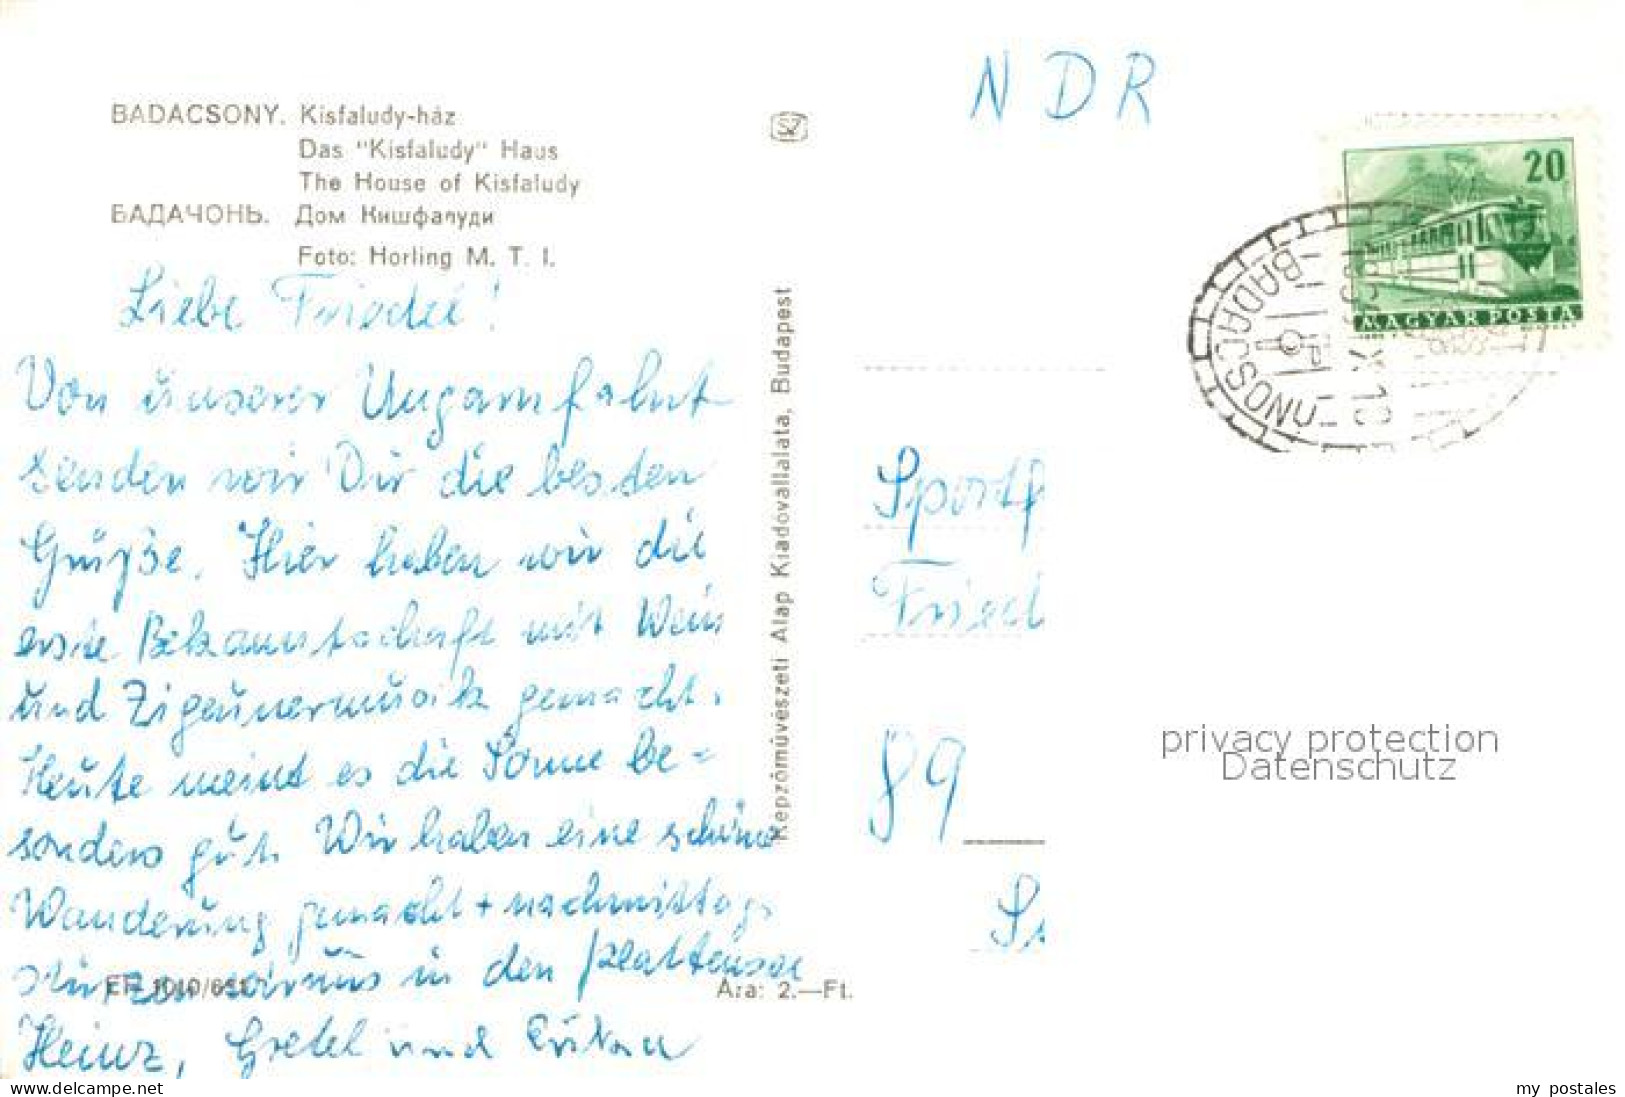 NDR
BADACSONY. Kisfaludy-ház
Das "Kisfaludy" Haus
The House of Kisfaludy
БАДАЧОНЬ. Дом Кишфалуди
Foto: Horling M. T. I.
20
MAGYAR POSTA
BADACSONY
Liebe Friedel!
Von unserer Ungarnfahrt
senden wir Dir die besten
Grüße. Hier haben wir die
erste Bekanntschaft mit Wein
und Zigeunermusik gemacht.
Heute meint es die Sonne be=
sonders gut. Wir haben eine schöne
Wanderung gemacht + nachmittags
stürzen wir uns in den Plattensee
Heinz, Gretel und
Képzőművészeti Alap Kiadóvállalata, Budapest
Ára: 2.—Ft.
Sportf
Fried
89
privacy protection
Datenschutz
www.ansichtskarten-center.de
my postales